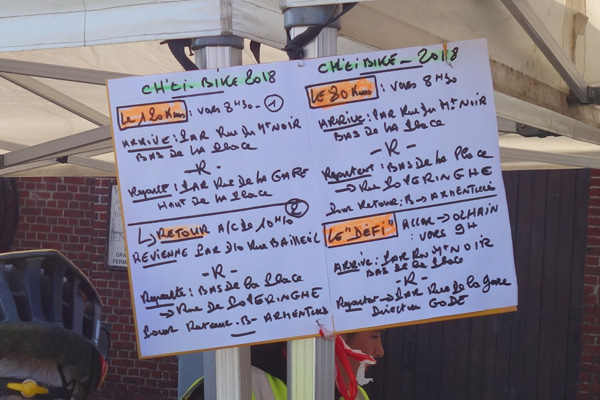 CH'TI-BIKE 2018
Le 120 Kms : VERS 8H30 - 1
ARRIVE : PAR Rue du Mt NOIR
BAS DE LA PLACE
-R-
Repart : PAR Rue De La GARE
HAUT De La Place
2
RETOUR A/C de 10H10
REVIENNE PAR D10 Rue BAILLEUL
-R-
Repart : BAS De La Place
→ Rue De LOVERINGHE
Pour Retour - B- ARMENTIERES
CH'Ti BIKE - 2018
Le 80 Kms : VERS 8H30
ARRIVE : PAR Rue Du Mt NOIR
BAS DE LA Place
-R-
Repartent : BAS De La Place
→ Rue LOVERINGHE
Pour Retour : B → ARMENTIERES
Le "DÉFI" ALLER → OLHAIN
: VERS 9H
ARRIVE : PAR Rue Mt NOIR
BAS De La Place
-R-
Repartent → PAR Rue de la Gare
Direction GODE